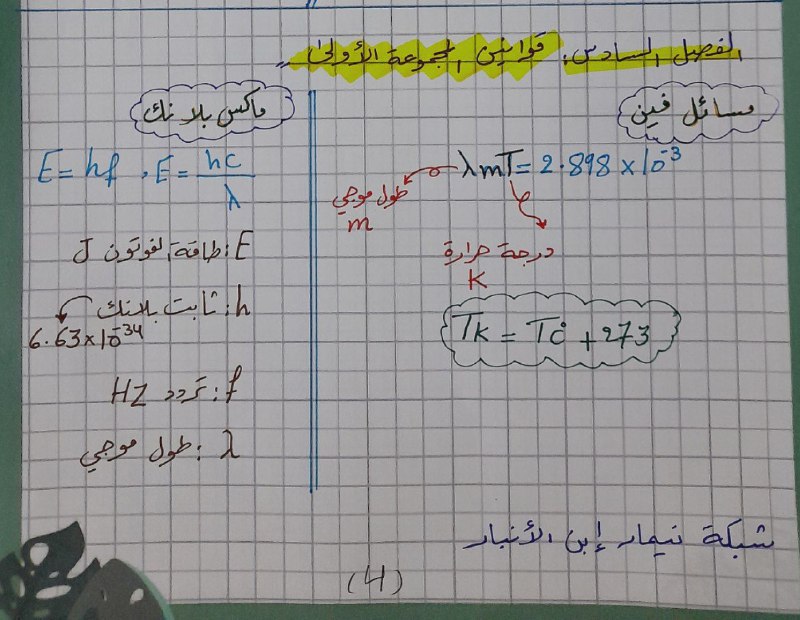 الفصل السادس: قوانين المجموعة الأولى
مسائل فين
λmT = 2.898 × 10⁻³
طول موجي
m
درجة حرارة
K
TK = TC° + 273
ماكس بلانك
E = hf , E = hc/λ
E: طاقة الفوتون J
h: ثابت بلانك
6.63×10⁻³⁴
f: تردد HZ
λ: طول موجي
شبكة نيمار إبن الأنبار
(4)